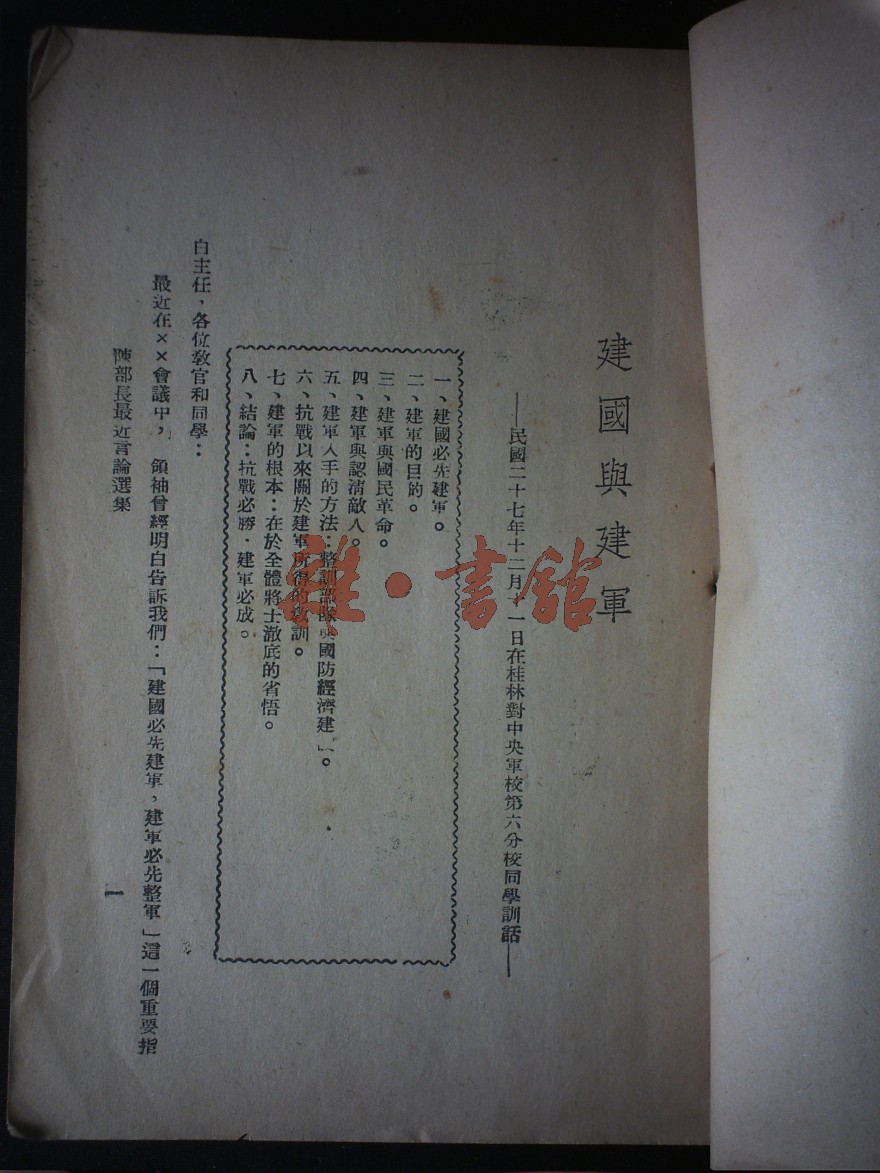 建國與建軍
——民國二十七年十二月十一日在桂林對中央軍校第六分校同學訓話——
一、建國必先建軍。
二、建軍的目的。
三、建軍與國民革命。
四、建軍與認清敵人。
五、建軍入手的方法：整訓部隊與國防經濟建。
六、抗戰以來關於建軍所得的教訓。
七、建軍的根本：在於全體將士澈底的省悟。
八、結論：抗戰必勝．建軍必成。
白主任，各位教官和同學：
最近在××會議中，領袖曾經明白告訴我們：「建國必先建軍，建軍必先整軍」這一個重要指
陳部長最近言論選集
一
雜·書館